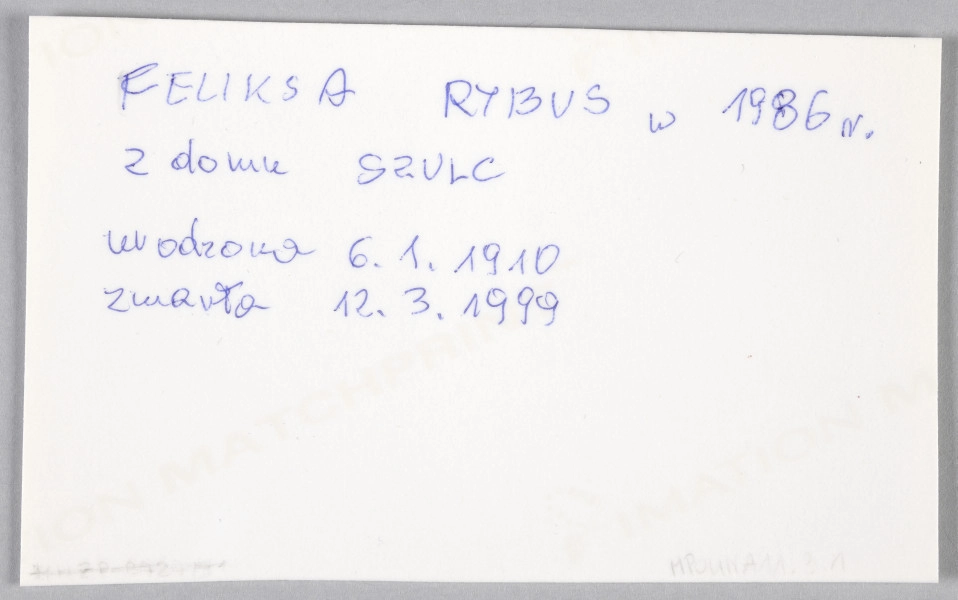 FELIKSA RYBUS w 1986 r.
z domu SZULC
urodzona 6. 1. 1910
zmarła 12. 3. 1999
ION MATCHPRINT
IMATION M